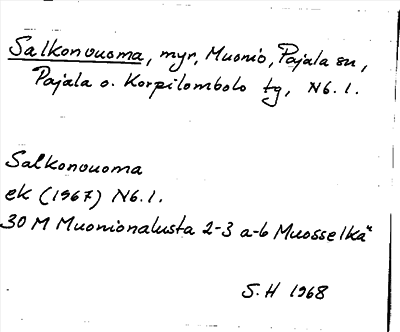 Salkonvuoma, myr, Muonio, Pajala sn,
Pajala o. Korpilombolo tg, N6. 1.
Salkonvuoma
ek (1967) N6.1.
30 M Muonionalusta 2-3 a-b Muosselkä
S.H 1968